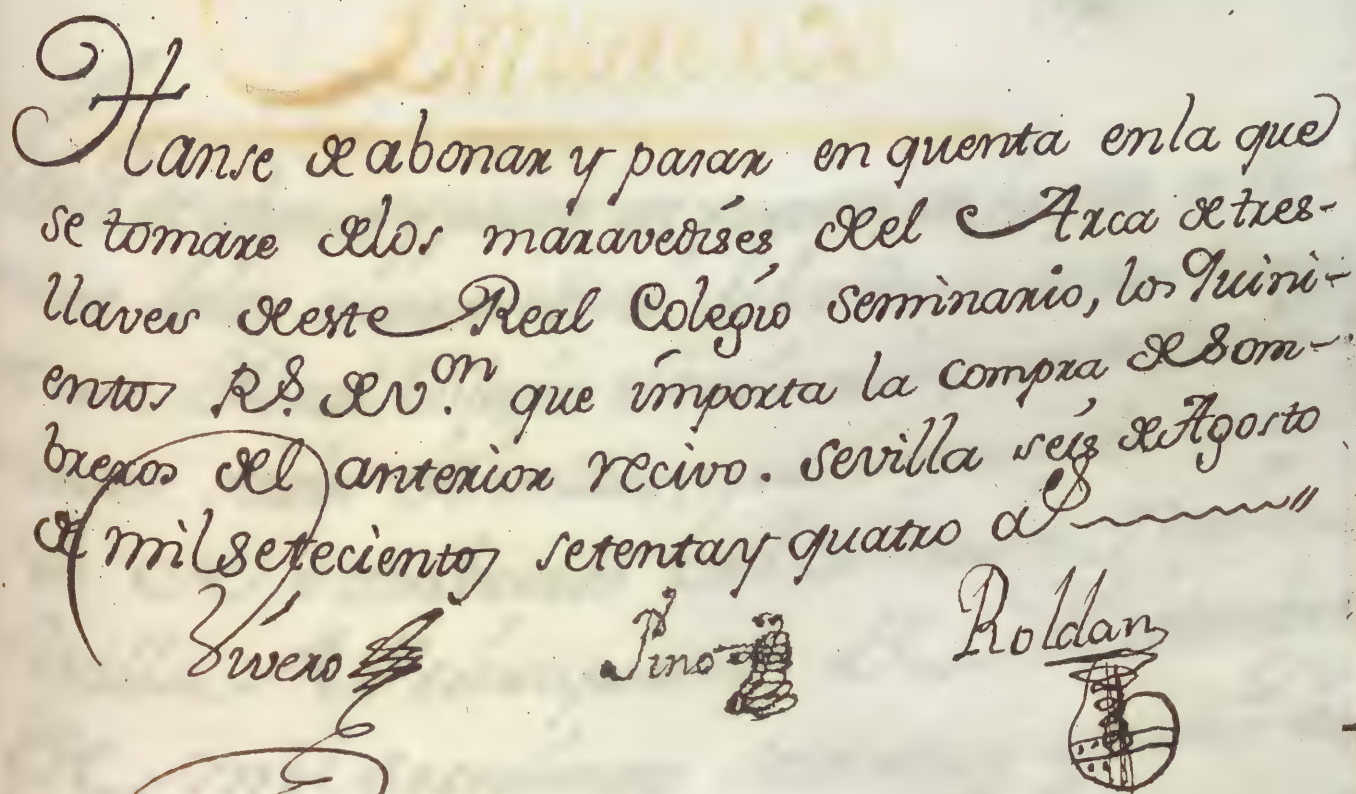 Hanse de abonar y pasar en quenta en la que
se tomare de los maravedíses del Arca de tres-
llaves de este Real Colegio Seminario, los Quini-
entos Rs. de von. que importa la compra de Som-
breros del anterior recivo. Sevilla seis de Agosto
de mil setecientos setenta y quatro as
Vivero Pino Roldan